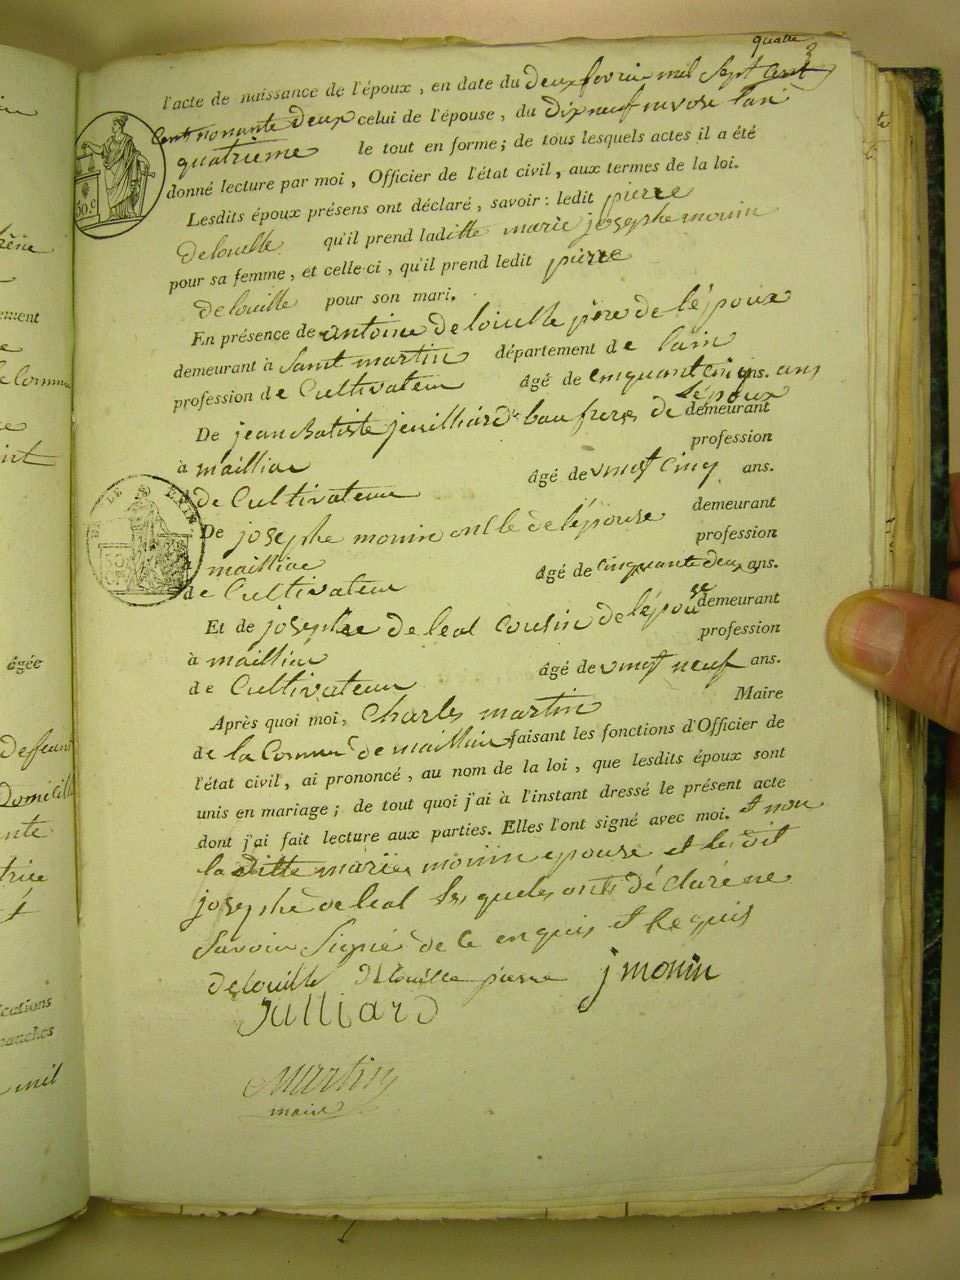 quatre
3
l'acte de naissance de l'époux, en date du deux fevrier mil sept cent
cent nonante deux celui de l'épouse, du dix neuf nivose l'an
quatrieme le tout en forme; de tous lesquels actes il a été
donné lecture par moi, Officier de l'état civil, aux termes de la loi.
Lesdits époux présens ont déclaré, savoir: ledit pierre
delouille qu'il prend laditte marie josephe monin
pour sa femme, et celle-ci, qu'il prend ledit pierre
delouille pour son mari.
En présence de antoine delouille père de lépoux
demeurant à saint martin département de lain
profession de Cultivateur âgé de cinquant cinq ans. ans
De jean Batiste juilliard bau frere de lépoux demeurant
à mailliac profession
de Cultivateur âgé de vingt cinq ans.
De josephe monin oncle de lépouse demeurant
à mailliac profession
de Cultivateur âgé de cinquante deux ans.
Et de josephe de leal cousin de lépouse demeurant
à mailliac profession
de Cultivateur âgé de vingt neuf ans.
Après quoi moi, Charles martin Maire
de la Commune de mailliac faisant les fonctions d'Officier de
l'état civil, ai prononcé, au nom de la loi, que lesdits époux sont
unis en mariage; de tout quoi j'ai à l'instant dressé le présent acte
dont j'ai fait lecture aux parties. Elles l'ont signé avec moi. et non
la ditte marie monin epouse et ledit
josephe de leal lesquels ont déclaré ne
savoir signé de ce enquis et Requis
delouille delouille pierre j monin
Julliard
martin
maire